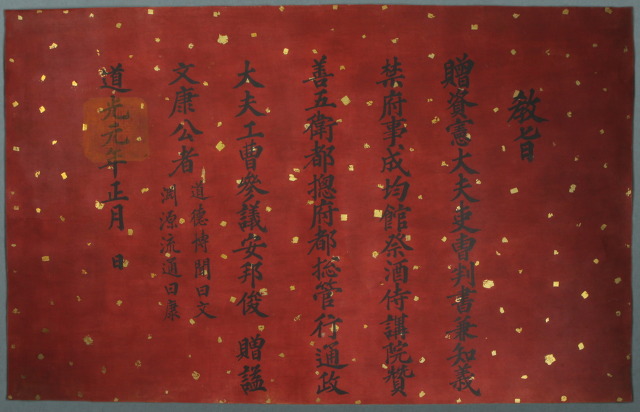 敎旨
贈資憲大夫吏曹判書兼知義
禁府事成均館祭酒侍講院贊
善五衛都摠府都摠管行通政
大夫工曹參議安邦俊 贈諡
文康公者 道德博聞曰文
淵源流通曰康
道光元年正月 日